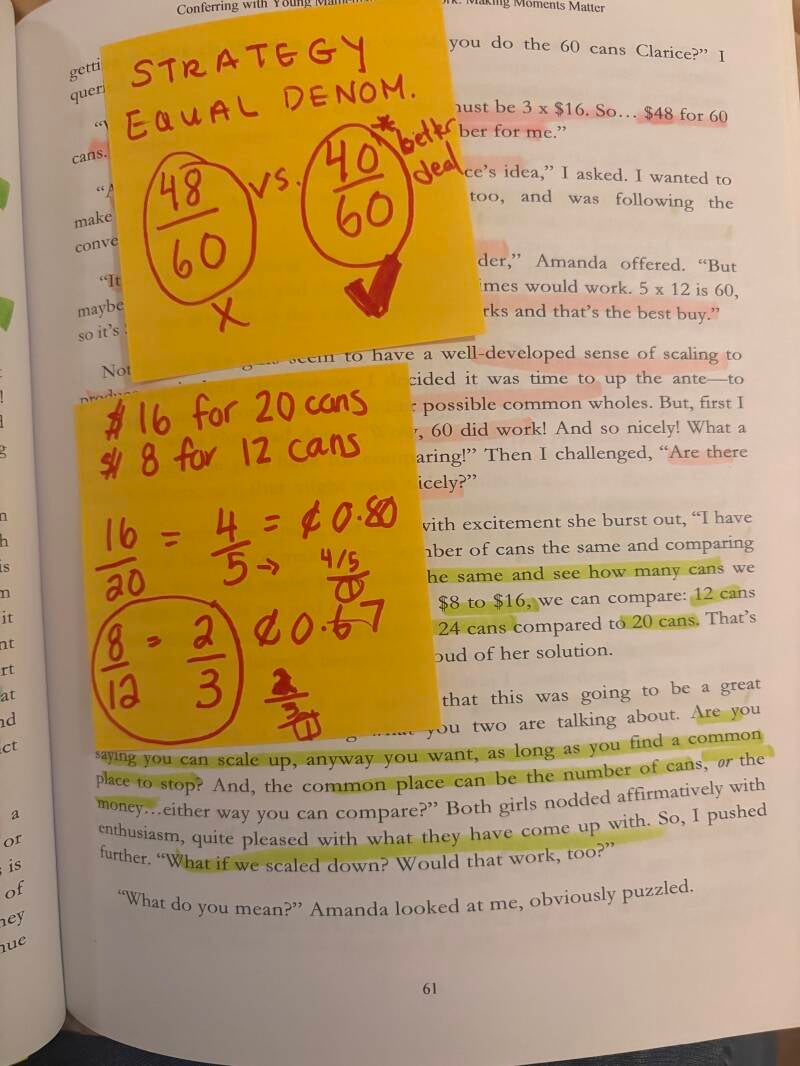 Conferring with Young
Making Moments Matter
getti
you do the 60 cans Clarice?” I
queri
must be 3 x $16. So… $48 for 60
cans.
ber for me.”
ce’s idea,” I asked. I wanted to
make
too, and was following the
conve
der,” Amanda offered. “But
“It
maybe
imes would work. 5 x 12 is 60,
so it’s
rks and that’s the best buy.”
Not
seem to have a well-developed sense of scaling to
ecided it was time to up the ante—to
possible common wholes. But, first I
, 60 did work! And so nicely! What a
aring!” Then I challenged, “Are there
icely?”
with excitement she burst out, “I have
mber of cans the same and comparing
he same and see how many cans we
$8 to $16, we can compare: 12 cans
24 cans compared to 20 cans. That’s
oud of her solution.
that this was going to be a great
you two are talking about. Are you
saying you can scale up, anyway you want, as long as you find a common
place to stop? And, the common place can be the number of cans, or the
money…either way you can compare?” Both girls nodded affirmatively with
enthusiasm, quite pleased with what they have come up with. So, I pushed
further. “What if we scaled down? Would that work, too?”
“What do you mean?” Amanda looked at me, obviously puzzled.
61
STRATEGY
EQUAL DENOM.
48/60 vs. 40/60 * better deal
X ✓
$16 for 20 cans
$8 for 12 cans
16/20 = 4/5 = ¢0.80
→ 4/5/1
8/12 = 2/3 ¢0.67
2/3/1